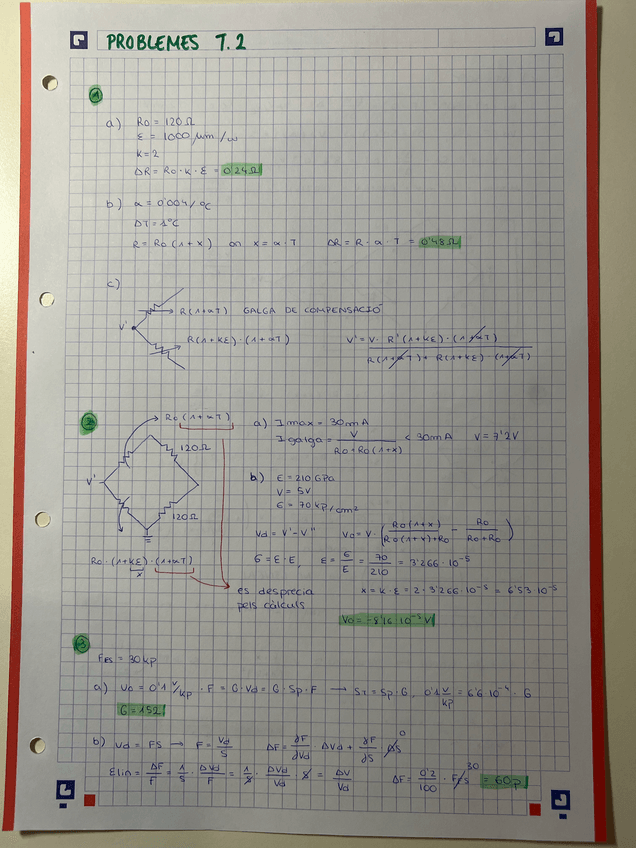 PROBLEMES T.2
1
a) R0 = 120 Ω
ε = 1000 μm/m
K = 2
ΔR = R0 · K · ε = 0'24 Ω
b) α = 0'004/ºC
ΔT = 1ºC
R = R0 (1+x) on x = α · T ΔR = R · α · T = 0'48 Ω
c)
R(1+αT) GALGA DE COMPENSACIÓ
V'
R(1+Kε) · (1+αT)
V' = V · R'(1+Kε) · (1+αT) / R(1+αT) + R(1+Kε) · (1+αT)
2
R0 (1+αT)
120Ω
V'
120Ω
R0 · (1+Kε) · (1+αT)
x
es desprecia
pels càlculs
a) I max = 30mA
I galga = V / R0+R0(1+x) < 30mA V = 7'2V
b) E = 210 GPa
V = 5V
σ = 70 kp/cm²
Vd = V' - V'' Vo = V · ( R0(1+x) / R0(1+x)+R0 - R0 / R0+R0 )
σ = E · ε, ε = σ / E = 70 / 210 = 3'266 · 10⁻⁵
x = K · ε = 2 · 3'266 · 10⁻⁵ = 6'53 · 10⁻⁵
Vo = -8'16 · 10⁻⁵ V
3
FES = 30 kp
a) Vo = 0'1 V/kp · F = G · Vd = G · Sp · F → ST = Sp · G, 0'1 V/kp = 6'6 · 10⁻⁴ · G
G = 152
b) Vd = FS → F = Vd / S ΔF = ∂F / ∂Vd · ΔVd + ∂F / ∂S · ΔS 0
Elin = ΔF / F = 1 / S · ΔVd / F = 1 / S · ΔVd / Vd · S = ΔV / Vd ΔF = 0'2 / 100 · FES 30 = 60p